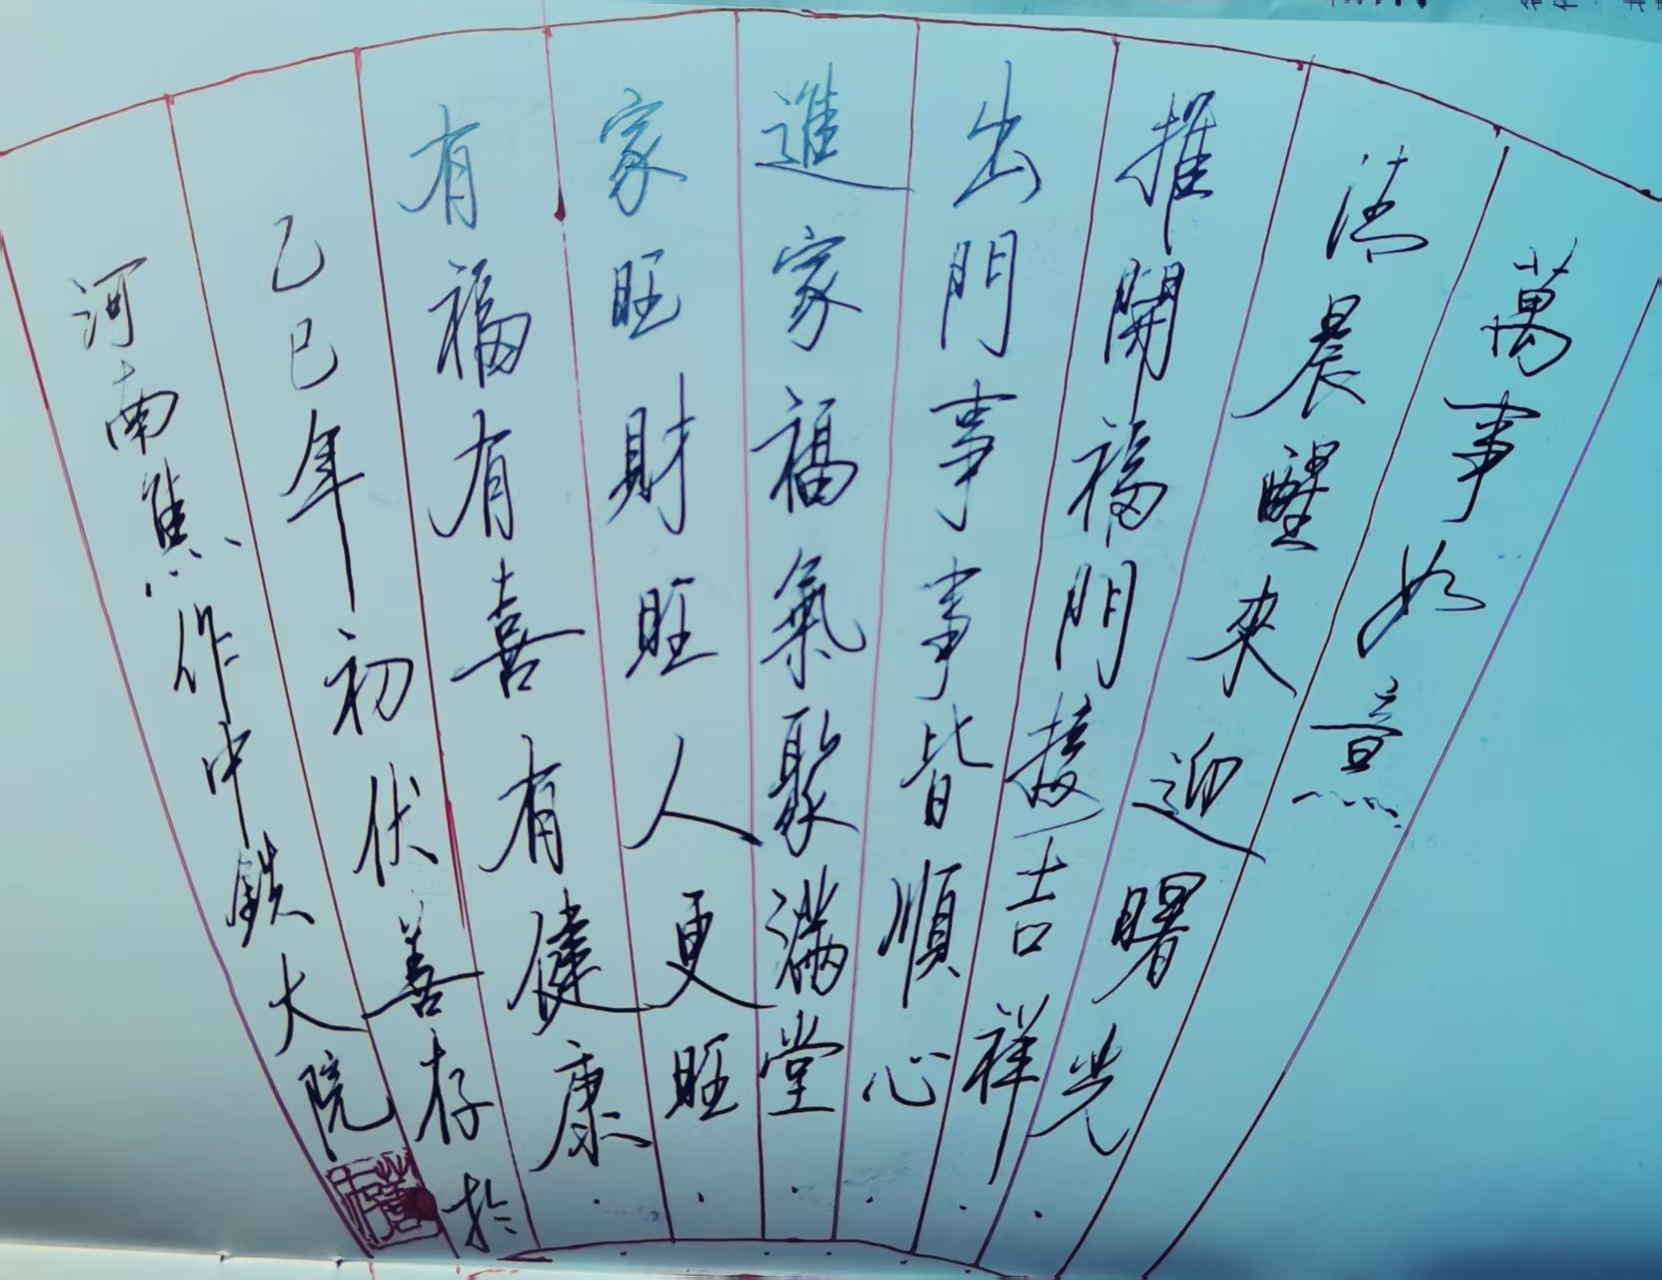 萬事如意
清晨醒來迎曙光
推開福門接吉祥
出門事事皆順心
進家福氣聚滿堂
家旺財旺人更旺
有福有喜有健康
乙巳年初伏善存於
河南焦作中鉄大院